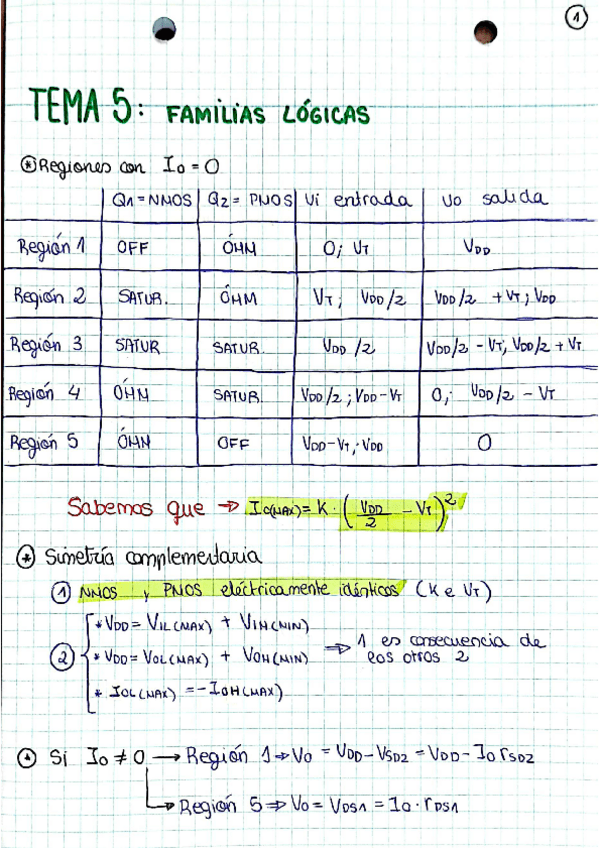 1
TEMA 5: FAMILIAS LÓGICAS
* Regiones con Io = 0
Q1 = NMOS Q2 = PMOS Vi entrada Vo salida
Región 1 OFF ÓHM 0; VT VDD
Región 2 SATUR. ÓHM VT; VDD/2 VDD/2 + VT; VDD
Región 3 SATUR SATUR. VDD/2 VDD/2 - VT, VDD/2 + VT
Región 4 ÓHM SATUR. VDD/2; VDD-VT 0; VDD/2 - VT
Región 5 ÓHM OFF VDD-VT; VDD 0
Sabemos que → IQ(MAX) = K · (VDD/2 - VT)²
* Simetría complementaria
1 NMOS y PMOS eléctricamente idénticos (K e VT)
2 { * VDD = VIL(MAX) + VIH(MIN)
* VDD = VOL(MAX) + VOH(MIN) ⇒ 1 es consecuencia de los otros 2
* IOL(MAX) = -IOH(MAX)
* Si Io ≠ 0 → Región 1 ⇒ Vo = VDD - VSD2 = VDD - Io rSD2
→ Región 5 ⇒ Vo = VDS1 = Io · rDS1